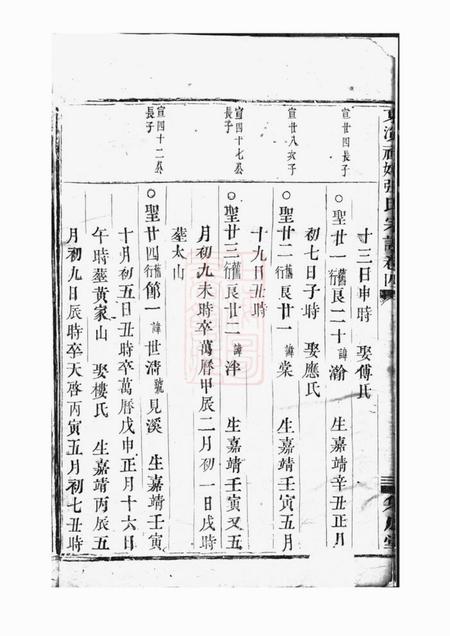 氏宗譜卷四
十三日申時 娶傅氏
宣廿四長子
○聖廿一舊行良二十諱瀚 生嘉靖辛丑正月
初七日子時 娶應氏
宣廿八次子
○聖廿二舊行良廿一諱棠 生嘉靖壬寅五月
十九日丑時
宣四十七公長子
○聖廿三舊行良廿二諱泮 生嘉靖壬寅又五
月初九未時卒萬曆甲辰二月初一日戌時
葬太山
宣四十二公長子
○聖廿四行節一諱世清號見溪 生嘉靖壬寅
十月初五日丑時卒萬曆戊申正月十六日
午時葬黃家山 娶樓氏 生嘉靖丙辰五
月初九日辰時卒天啓丙寅五月初七丑時